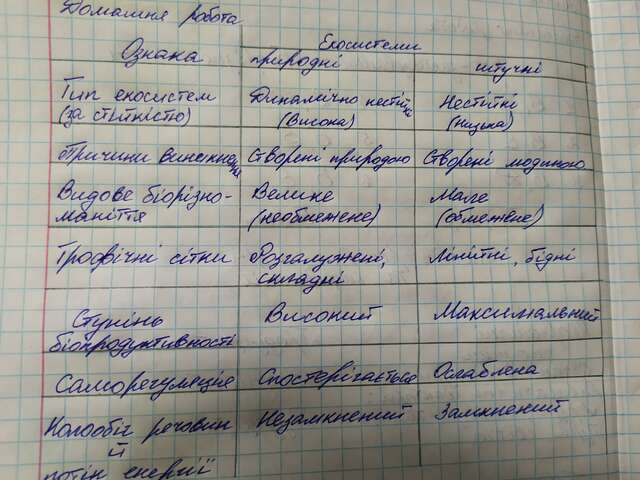 Домашня робота
Ознака Екосистеми
природні штучні
Тип екосистем Динамічно нестійкі Нестійкі
(за стійкістю) (Висока) (Низька)
Причини виникнення Створені природою Створені людиною
Видове біорізно- Велике Мале
маніття (необмежене) (обмежене)
Трофічні сітки Розгалужені, Лінійні, бідні
складні
Ступінь Високий Максимальний
біопродуктивності
Саморегуляція Спостерігається Ослаблена
Колообіг речовин Незамкнений Замкнений
й
потік енергії